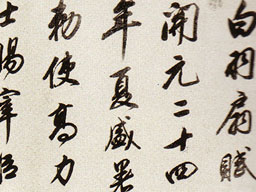 白羽扇賦
開元二十四
年夏盛暑
勅使高力
士賜宰臣